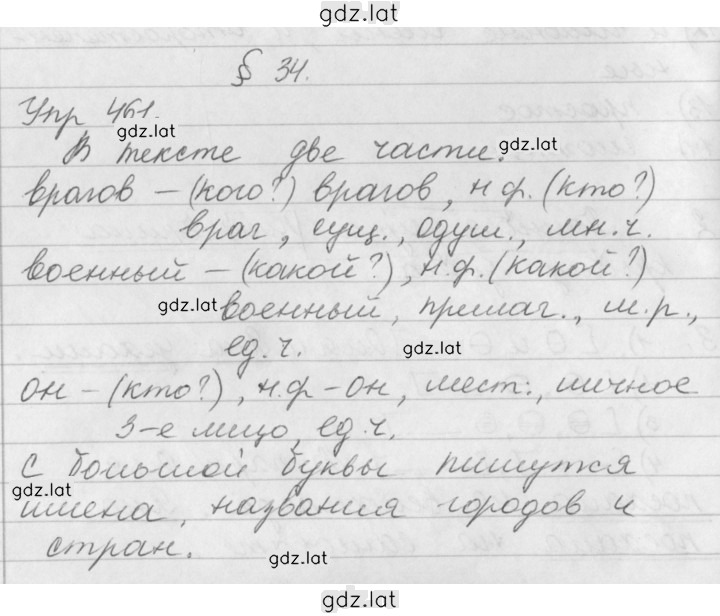 gdz.lat
§ 34.
Упр 461.
gdz.lat
В тексте две части.
gdz.lat
врагов – (кого?) врагов, н.ф. (кто?)
враг, сущ., одуш., мн.ч.
военный – (какой?), н.ф. (какой?)
gdz.lat
военный, прилаг., м.р.,
ед.ч.
gdz.lat
он – (кто?), н.ф – он, мест., личное
3-е лицо, ед.ч.
С большой буквы пишутся
gdz.lat
имена, названия городов и
стран.
gdz.lat
gdz.lat